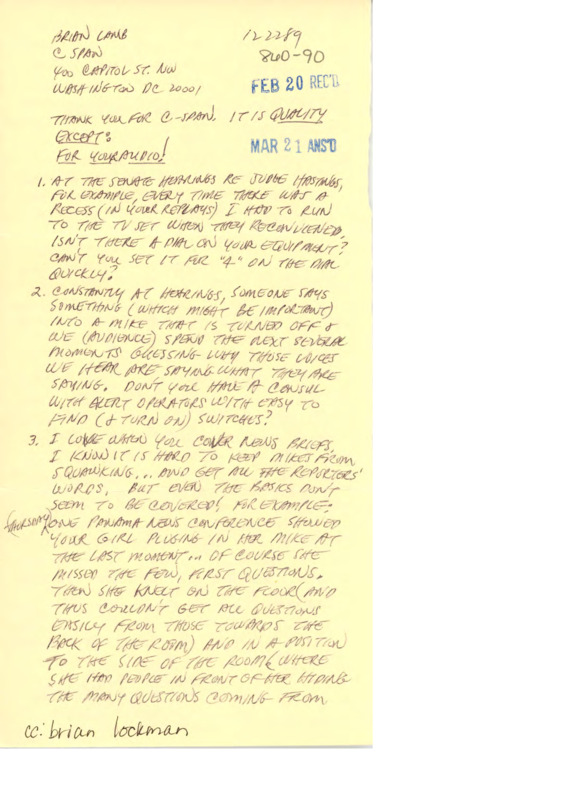 BRIAN LAMB
122289
C SPAN
860-90
400 CAPITOL ST. NW
FEB 20 REC'D
WASHINGTON DC 20001
THANK YOU FOR C-SPAN. IT IS QUALITY
EXCEPT:
MAR 21 ANS'D
FOR YOUR AUDIO!
1. AT THE SENATE HEARINGS RE JUDGE HASTINGS,
FOR EXAMPLE, EVERY TIME THERE WAS A
RECESS (IN YOUR REPLAYS) I HAD TO RUN
TO THE TV SET WHEN THEY RECONVIENED,
ISN'T THERE A DIAL ON YOUR EQUIPMENT?
CAN'T YOU SET IT FOR "4" ON THE DIAL
QUICKLY?
2. CONSTANTLY AT HEARINGS, SOMEONE SAYS
SOMETHING (WHICH MIGHT BE IMPORTANT)
INTO A MIKE THAT IS TURNED OFF &
WE (AUDIENCE) SPEND THE NEXT SEVERAL
MOMENTS GUESSING WHY THOSE VOICES
WE HEAR ARE SAYING WHAT THEY ARE
SAYING. DON'T YOU HAVE A CONSUL
WITH ALERT OPERATORS WITH EASY TO
FIND (& TURN ON) SWITCHES?
3. I LOVE WHEN YOU COVER NEWS BRIEFS,
I KNOW IT IS HARD TO KEEP MIKES FROM
SQUAWKING... AND GET ALL THE REPORTERS'
WORDS, BUT EVEN THE BASICS DON'T
SEEM TO BE COVERED! FOR EXAMPLE:
(THURSDAY) ONE PANAMA NEWS CONFERENCE SHOWED
YOUR GIRL PLUGING IN HER MIKE AT
THE LAST MOMENT... OF COURSE SHE
MISSED THE FEW, FIRST QUESTIONS.
THEN SHE KNELT ON THE FLOOR (AND
THUS COULDN'T GET ALL QUESTIONS
EASILY FROM THOSE TOWARDS THE
BACK OF THE ROOM) AND IN A POSITION
TO THE SIDE OF THE ROOM (WHERE
SHE HAD PEOPLE IN FRONT OF HER HIDING
THE MANY QUESTIONS COMING FROM
cc: brian lockman